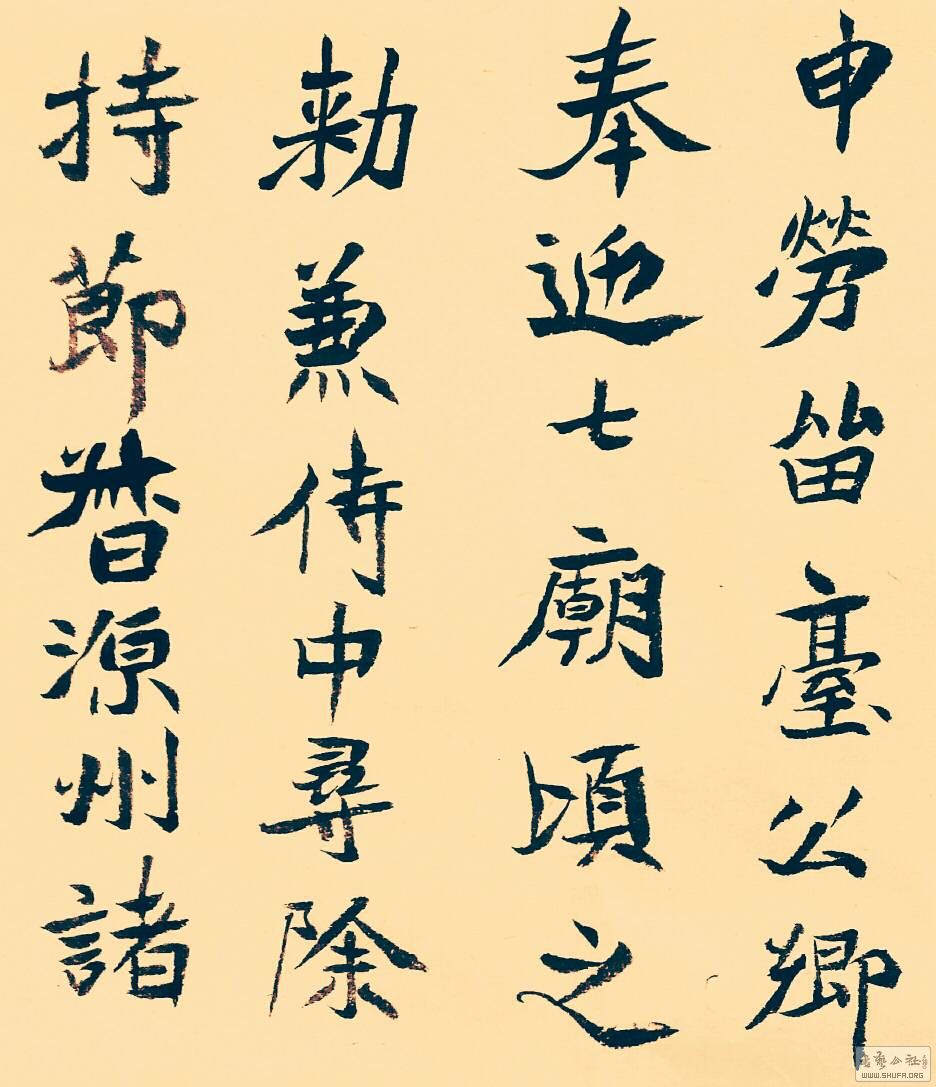 申勞留臺公卿
奉迎七廟頃之
勑兼侍中尋除
持節督源州諸
書藝公社
WWW.SHUFA.ORG